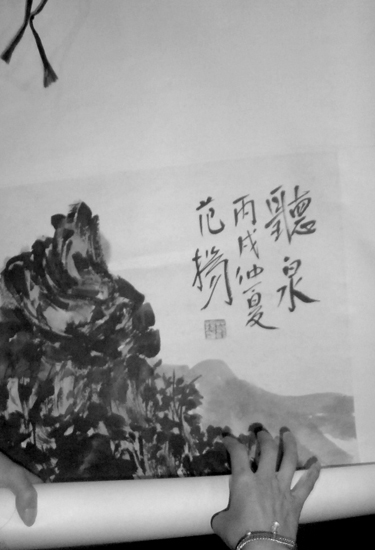 聽泉
丙戌仲夏
范揚